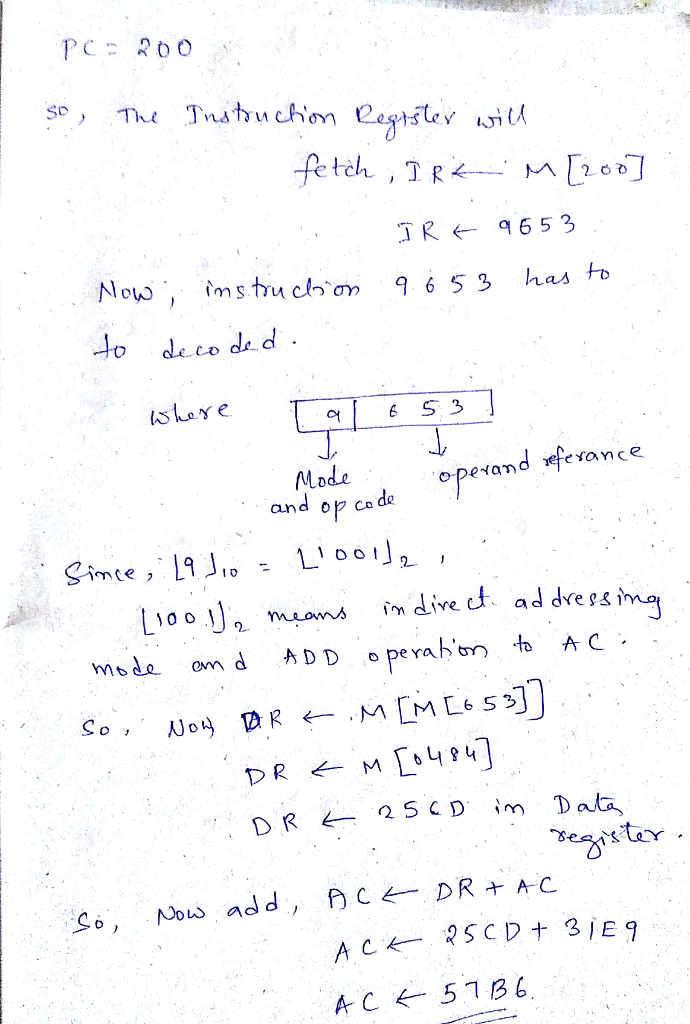 PC = 200
so, The Instruction Register will
fetch, IR ← M [200]
IR ← 9653
Now, instruction 9653 has to
to decoded.
where 9 | 6 5 3
↓ ↓
Mode operand referance
and opcode
Since, [9]10 = [1001]2,
[1001]2 means indirect addressing
mode and ADD operation to AC.
So, Now DR ← M [M[653]]
DR ← M [0484]
DR ← 25CD in Data
register.
So, Now add, AC ← DR + AC
AC ← 25CD + 31E9
AC ← 57B6.